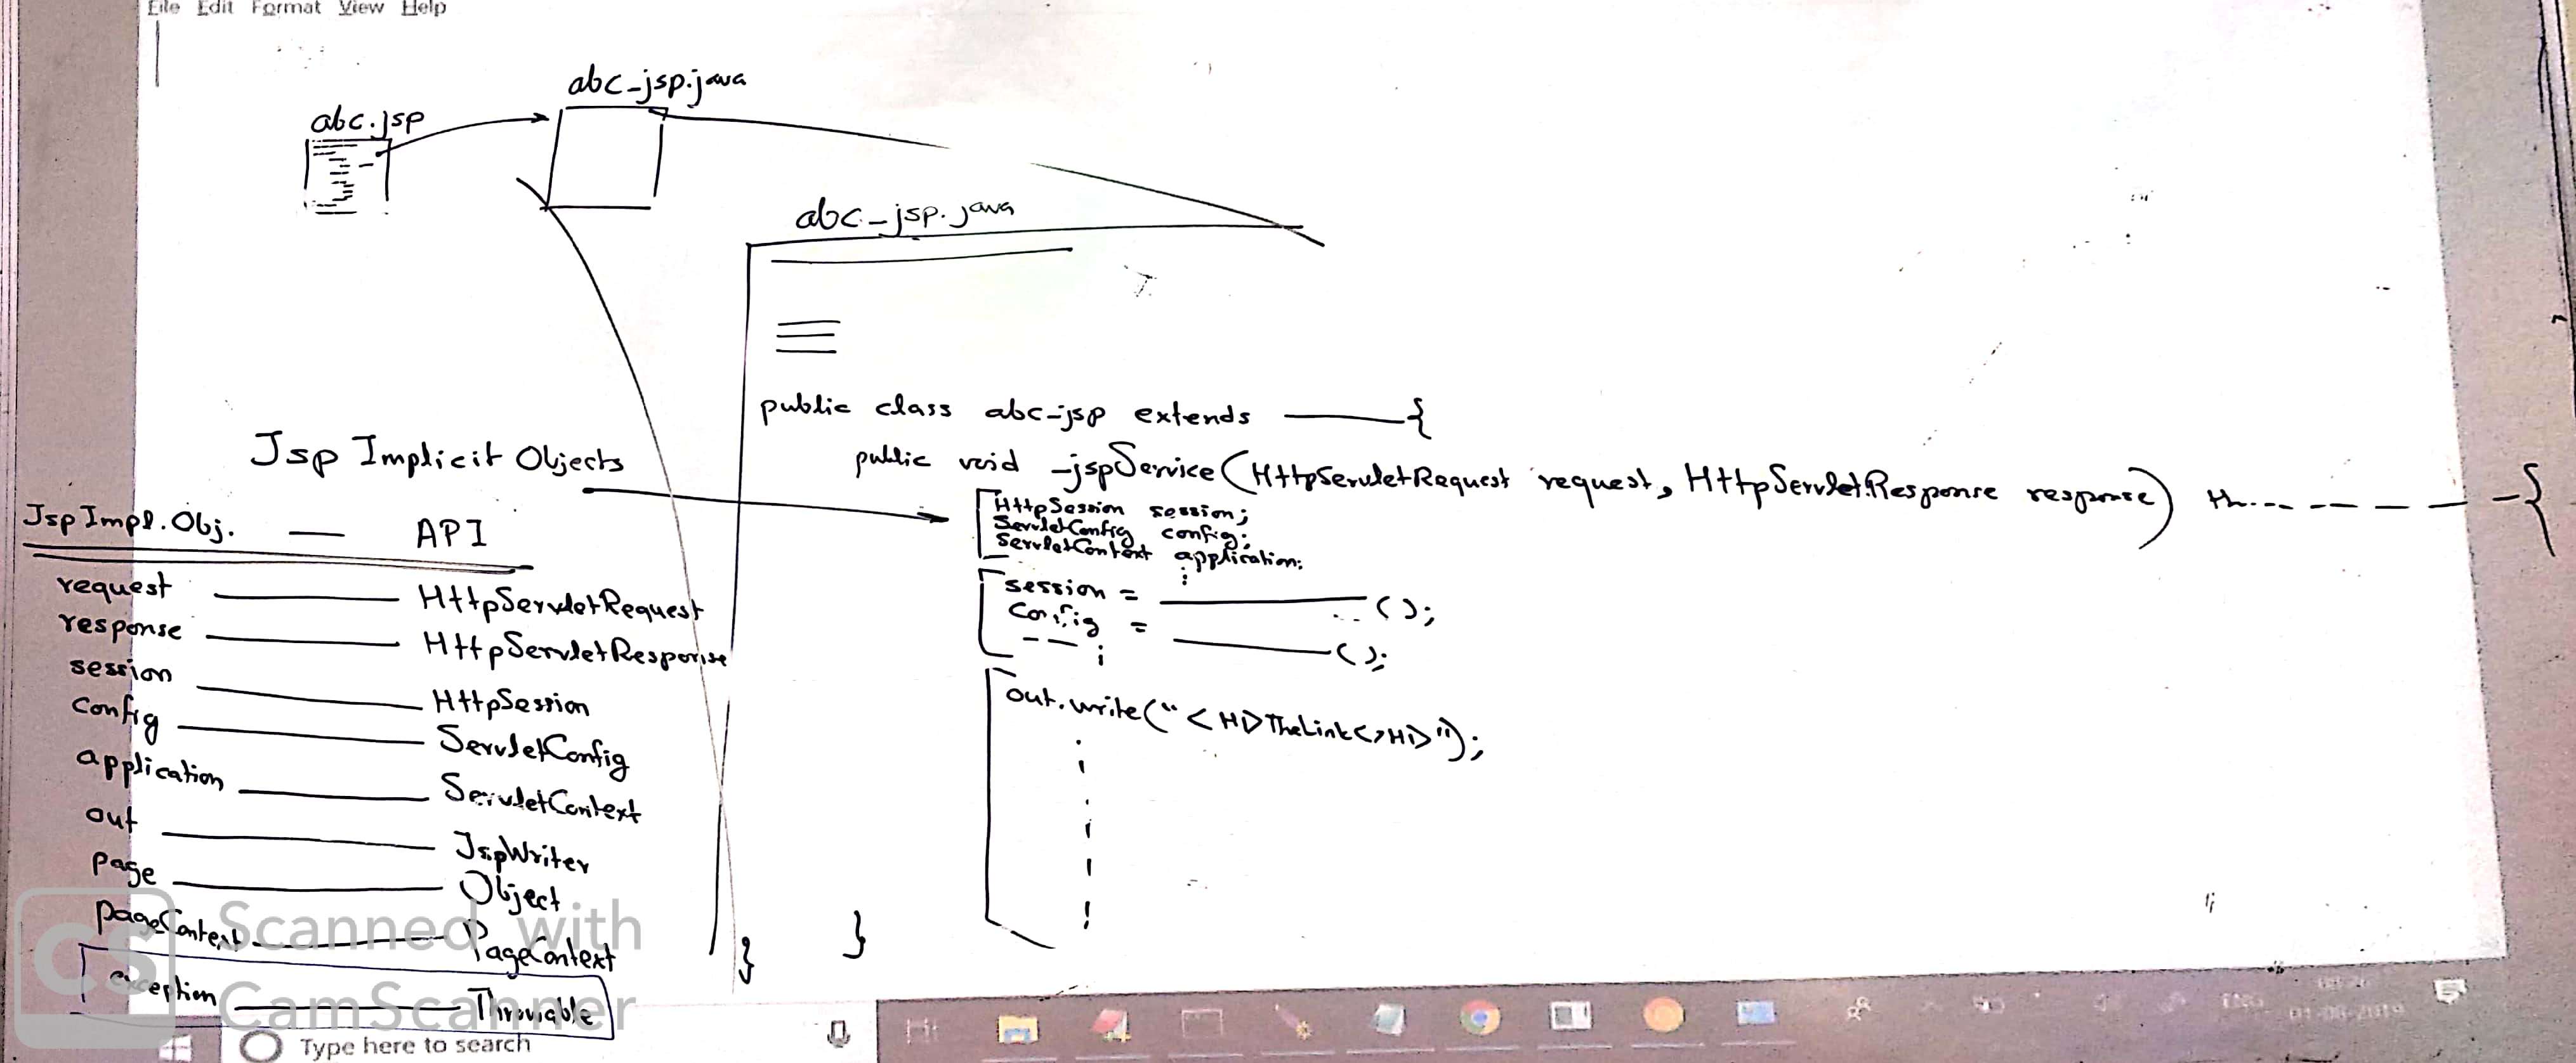 File Edit Format View Help
abc-jsp.java
abc.jsp
abc-jsp.java
public class abc-jsp extends ——— {
public void _jspService(HttpServletRequest request, HttpServletResponse response) th... — — — — {
HttpSession session;
ServletConfig config;
ServletContext application;
session = ——— ();
config = ——— ();
out.write("<H1>TheLink</H1>");
}
}
Jsp Implicit Objects
Jsp Impl. Obj. — API
request ——— HttpServletRequest
response ——— HttpServletResponse
session ——— HttpSession
config ——— ServletConfig
application ——— ServletContext
out ——— JspWriter
page ——— Object
pageContext ——— PageContext
exception ——— Throwable
CS Scanned with
CamScanner
Type here to search
ENG
01-08-2019